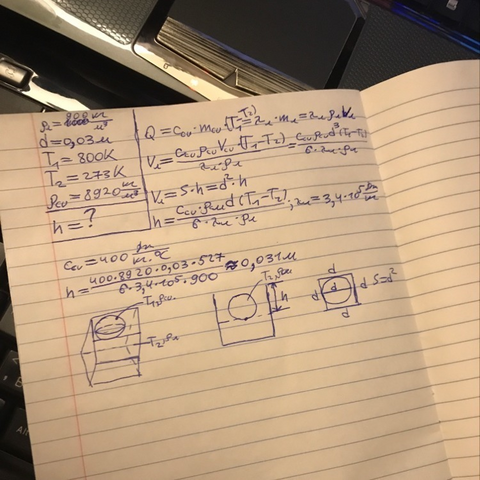 ρл=900 кг/м³
d=0,03м
T₁=800K
T₂=273K
ρcu=8920 кг/м³
h=?
Q=Ccu·mcu·(T₁-T₂)=λл·mл=λл·ρлVл
Vл=Ccuρcu Vcu·(T₁-T₂)/λл·ρл=Ccuρcu d³(T₁-T₂)/6·λл·ρл
Vл=S·h=d²·h
h=Ccu·ρcu d(T₁-T₂)/6·λл·ρл; λл=3,4·10⁵ Дж/кг
Ccu=400 Дж/кг·°C
h=400·8920·0,03·527/6·3,4·10⁵·900≈0,031м
T₁,ρcu
T₂,ρл
T₂,ρcu
h
d
d
d
d
d
S=d²